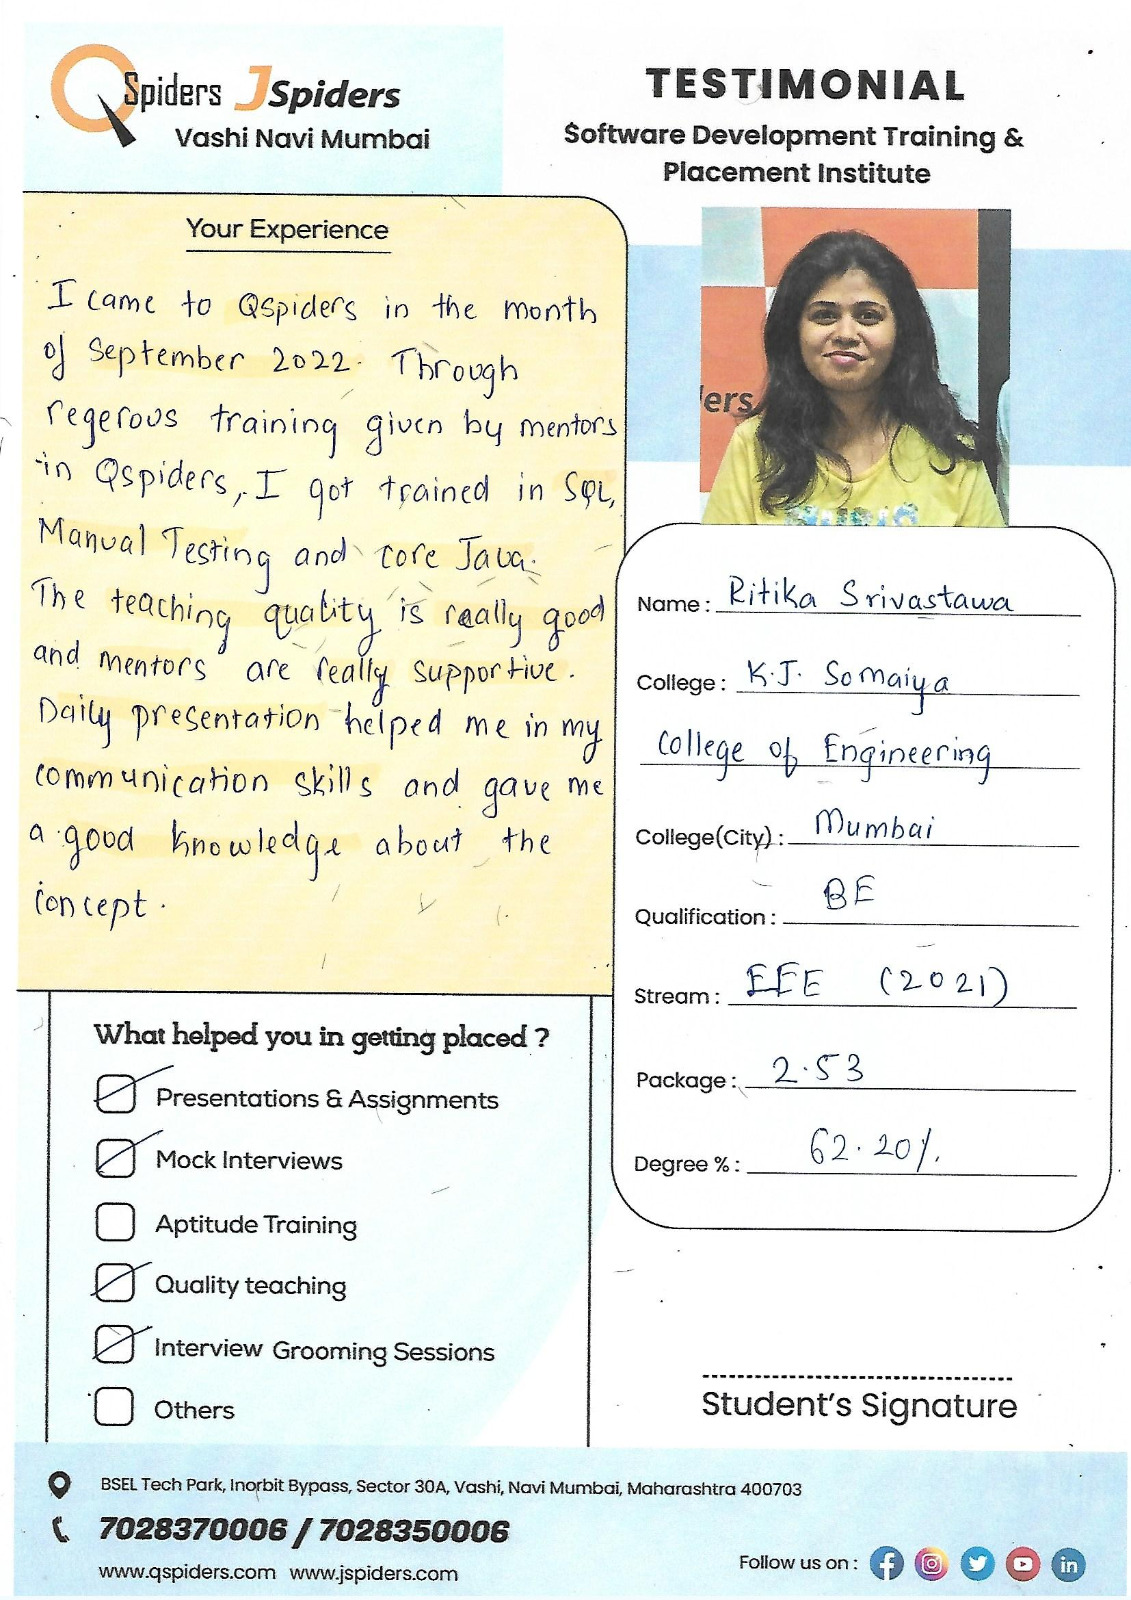 QSpiders JSpiders
Vashi Navi Mumbai
TESTIMONIAL
Software Development Training &
Placement Institute
Your Experience
I came to QSpiders in the month
of September 2022. Through
regerous training given by mentors
in Qspiders, I got trained in SQL,
Manual Testing and core Java.
The teaching quality is really good
and mentors are really supportive.
Daily presentation helped me in my
communication skills and gave me
a good knowledge about the
concept.
ders
Name : Ritika Srivastawa
College : K.J. Somaiya
College of Engineering
College(City) : Mumbai
Qualification : BE
Stream : EEE (2021)
Package : 2.53
Degree % : 62.20%.
What helped you in getting placed ?
Presentations & Assignments
Mock Interviews
Aptitude Training
Quality teaching
Interview Grooming Sessions
Others
Student's Signature
BSEL Tech Park, Inorbit Bypass, Sector 30A, Vashi, Navi Mumbai, Maharashtra 400703
7028370006 / 7028350006
www.qspiders.com www.jspiders.com
Follow us on :